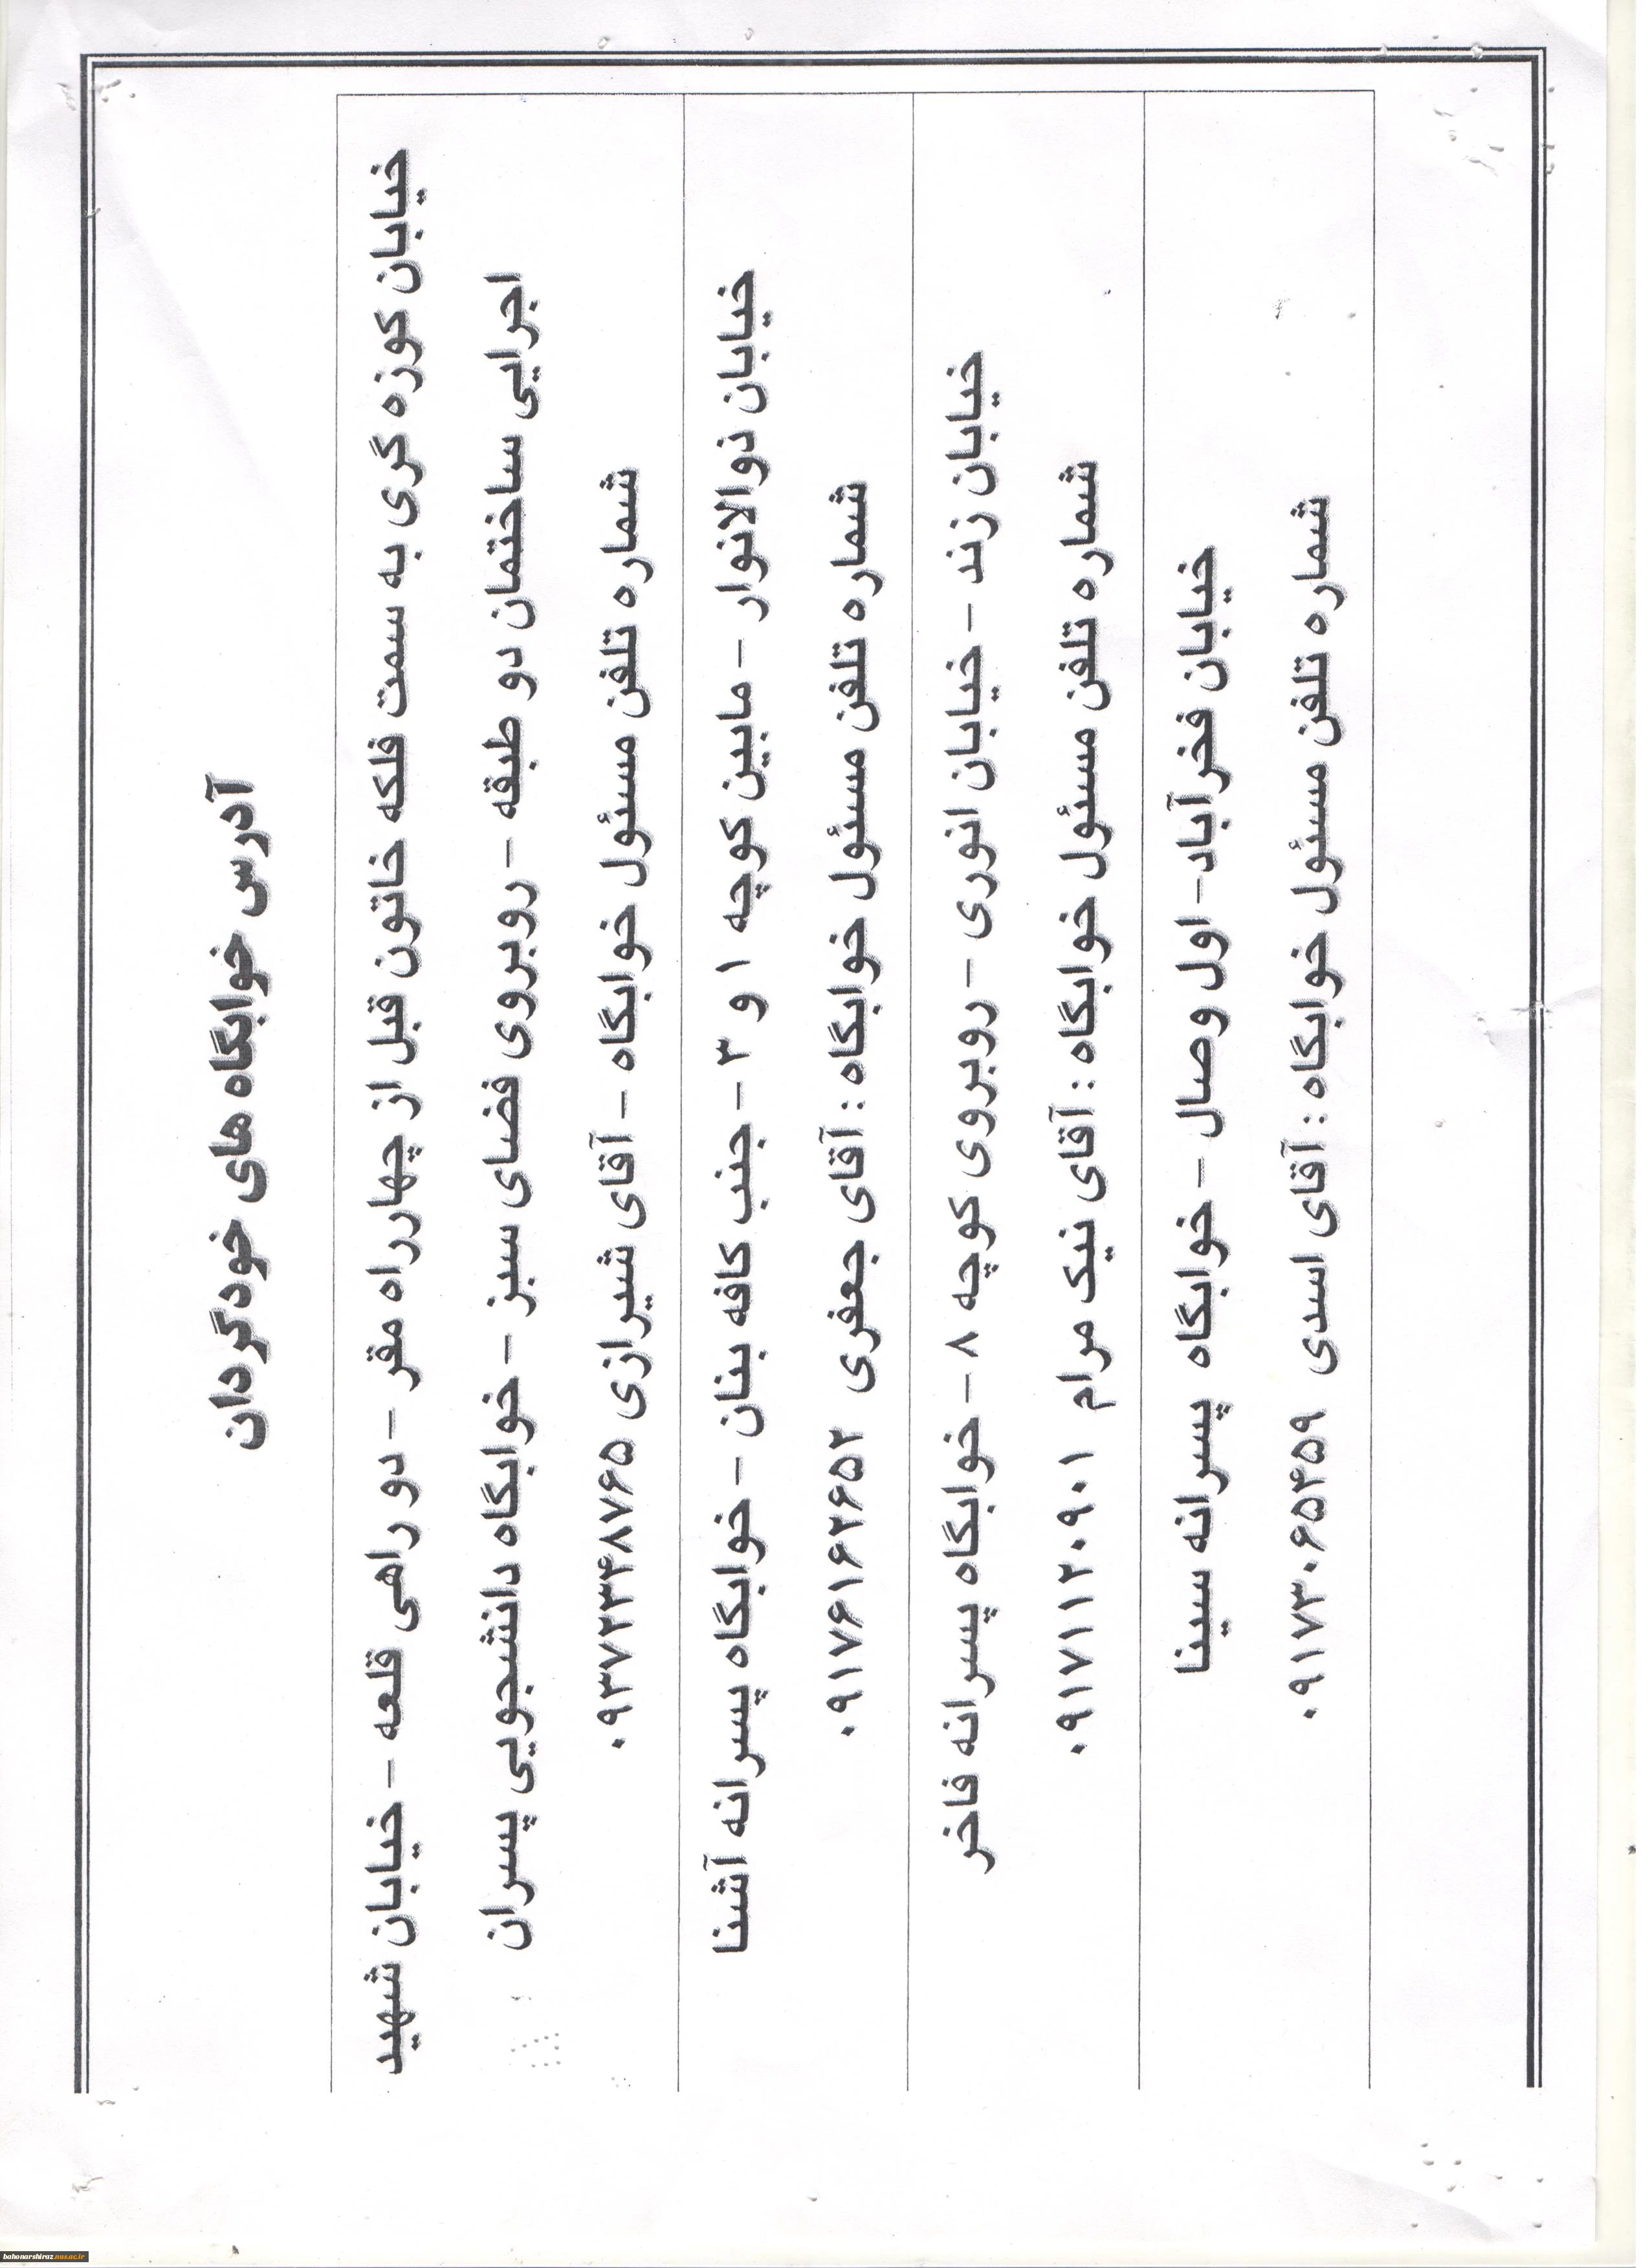 آدرس خوابگاه های خودگردان
خیابان کوزه گری به سمت فلکه خاتون قبل از چهارراه مقر – دو راهی قلعه – خیابان شهید
اجرایی ساختمان دو طبقه – روبروی فضای سبز – خوابگاه دانشجویی پسران
شماره تلفن مسئول خوابگاه – آقای شیرازی ۰۹۳۷۲۳۴۸۷۶۵
خیابان نوالانوار – مابین کوچه ۱ و ۳ – جنب کافه بنان – خوابگاه پسرانه آشنا
شماره تلفن مسئول خوابگاه : آقای جعفری ۰۹۱۷۶۱۶۲۶۵۲
خیابان زند – خیابان انوری – روبروی کوچه ۸ – خوابگاه پسرانه فاخر
شماره تلفن مسئول خوابگاه : آقای نیک مرام ۰۹۱۷۱۱۲۰۹۰۱
خیابان فخرآباد– اول وصال – خوابگاه پسرانه سینا
شماره تلفن مسئول خوابگاه : آقای اسدی ۰۹۱۷۳۰۶۵۴۵۹
bahonarshiraz.nus.ac.ir